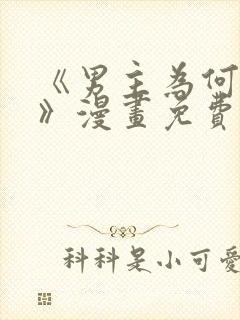 《男主為何
》漫畫免費
科科是小可愛